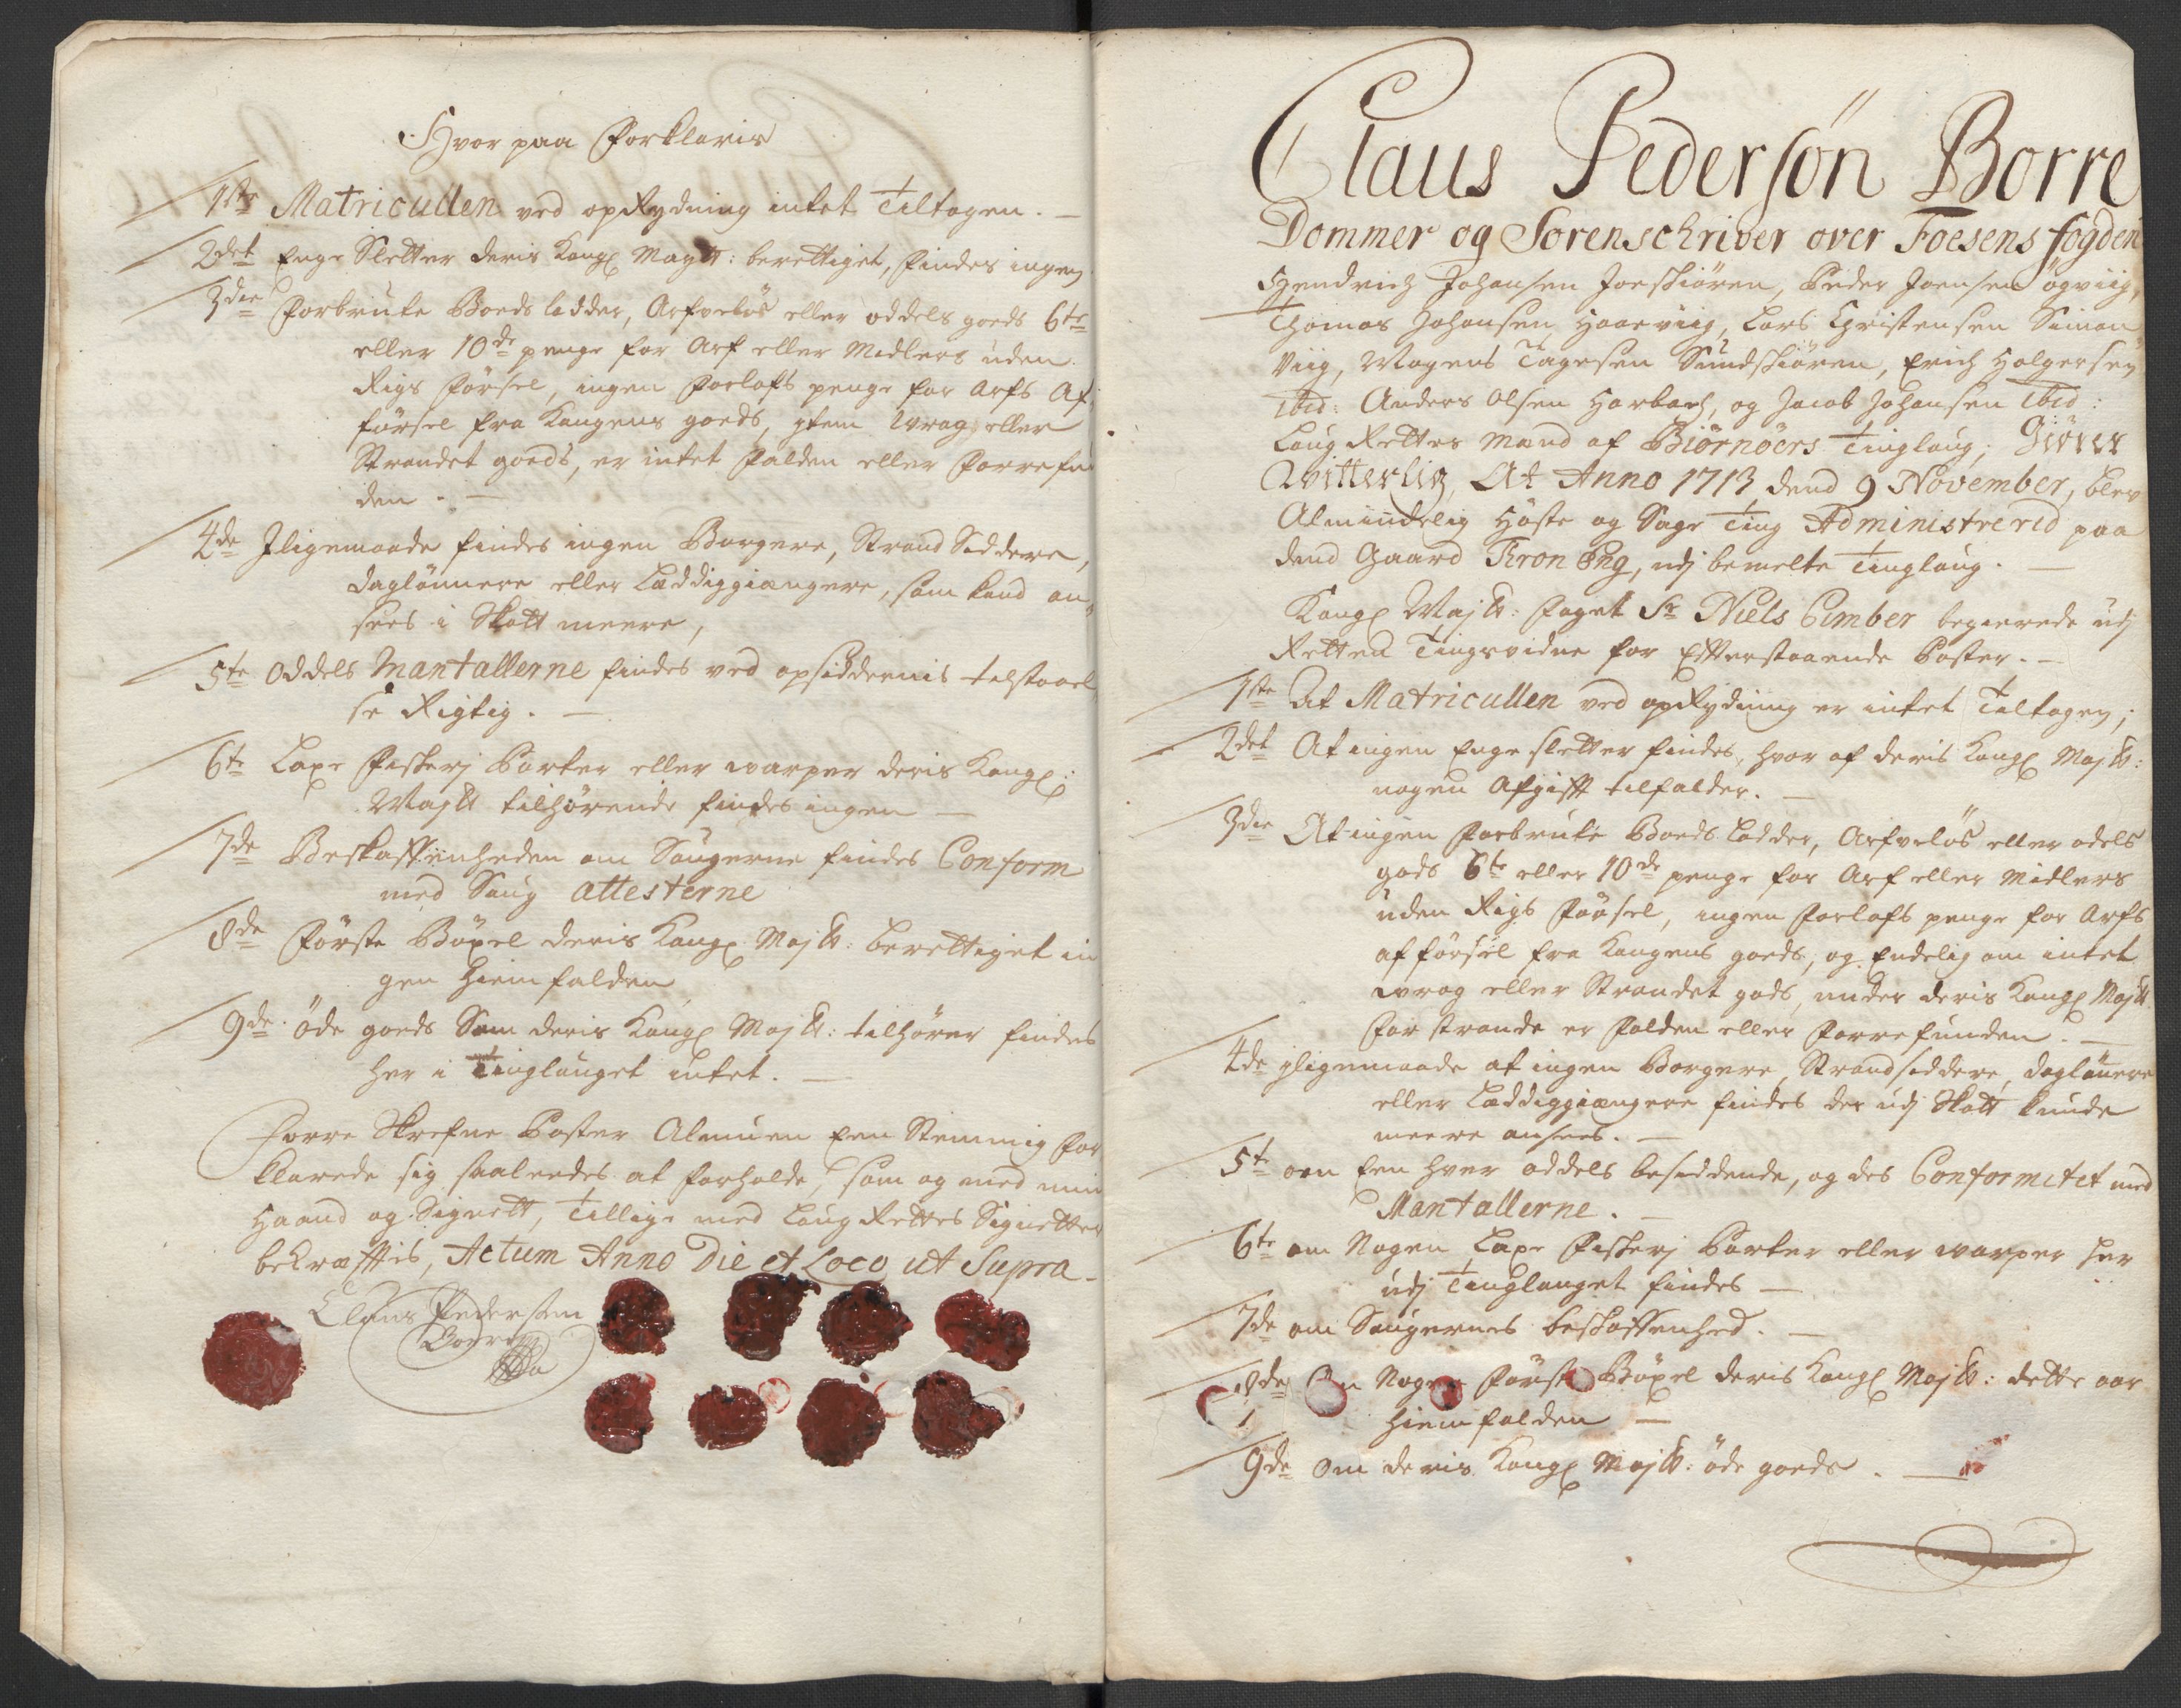 Hvor paa Forklaris
1ste Matricullen ved opRydning intet Tiltagen. —
2det Enge Sletter deris Kongl Maytt: berettiget, findes ingen
3die Forbrute Boeds lodder, Arfveløs eller oddels goeds 6te
eller 10de penge for Arf eller Midlers uden
Rigs førsel, ingen Forlofs penge for Arfs Af
førsel fra Kongens goeds, item wrag eller
Strandet goeds, er intet falden eller Forrefun
den. —
4de Jligemaade findes ingen Borgere, Strand Siddere,
daglønnere eller Læddiggiængere, som kand an¬
sees i Skatt meere,
5te Oddels Mantallerne findes ved opsiddernis tilstaael
se Rigtig. —
6te Laxe Fiskerj Parter eller warper deris Kongl:
Maytt tilhørende findes ingen —
7de Beskaffenheden om Saugerne findes Conform
med Saug Attesterne
8de Første Böxel deris Kongl Maytt: berettiget in
gen hiemfalden
9de øde goeds Som deris Kongl Maytt: tilhører findes
her i Tinglauget intet. —
Forre Skrefne Poster Almuen Een Stemmig For
klarede sig saaledes at forholde, som og med min
Haand og Signett, Tillige med Laug Rettes Signetter
bekræfftis, Actum Anno Die et Loco ut Supra -
Claus Pedersøn
Borre
Claus Pedersøn Borre
Dommer og Sorenschriver over Foesens fogden
Hendrich Johansen Joeskiøren, Peder Joensen ögviig,
Thomas Johansen Haarviig, Lars Christensen Simon
Viig, Mogens Tagesen Sundskiøren, Erich Holgersen
ibid: Anders Olsen Harbach, og Jacob Johansen ibid:
Laug Rettes Mænd af Biørnøers Tinglaug; Giører
Witterlig, At Anno 1713 dend 9 November, blev
Almindelig Høste og Sage Ting Administrerid paa
dend Gaard Kron Eng, udj bemelte Tinglaug. —
Kongl Maytt: Foget Sr Niels Cimber begierede udj
Retten Tingsvidne for Efterstaaende Poster. —
1ste At Matricullen ved opRydning er intet Tiltagen;
2det At ingen Enge sletter findes, hvor af deris Kongl Maytt:
nogen Afgifft tilfalder. —
3die At ingen Forbrute Boeds Lodder, Arfveløs eller odels
gods 6te eller 10de penge for Arf eller Midlers
uden Rigs Førsel, ingen Forlofs penge for Arfs
afførsel fra Kongens goeds, og Endelig om intet
wrag eller Strandet gods, under deris Kongl Maytt
Forstrande er falden eller Forrefunden. —
4de jligemaade at ingen Borgere, Strandsiddere, daglønnere
eller Læddiggiængere findes der udj Skatt kunde
meere ansees. —
5te om Een hver oddels besiddende, og des Conformitet med
Mantallerne. —
6te om Nogen Laxe Fiskerj Parter eller warper her
udj Tinglauget findes —
7de om Saugernes beskaffenhed. —
8de Om Nogen Første Böxel deris Kongl Maytt: dette aar
hiemfalden —
9de Om deris Kongl Maytt: øde goeds. —